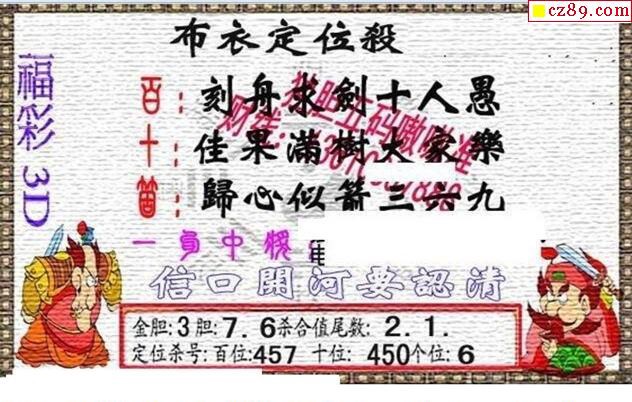 cz89.com
布衣定位殺
福彩 3D
百:刻舟求劍十人愚
十:佳果滿樹大家樂
箇:歸心似箭三六九
信口開河要認清
金胆:3胆:7.6杀合值尾数:2.1.
定位杀号:百位:457 十位:450个位:6